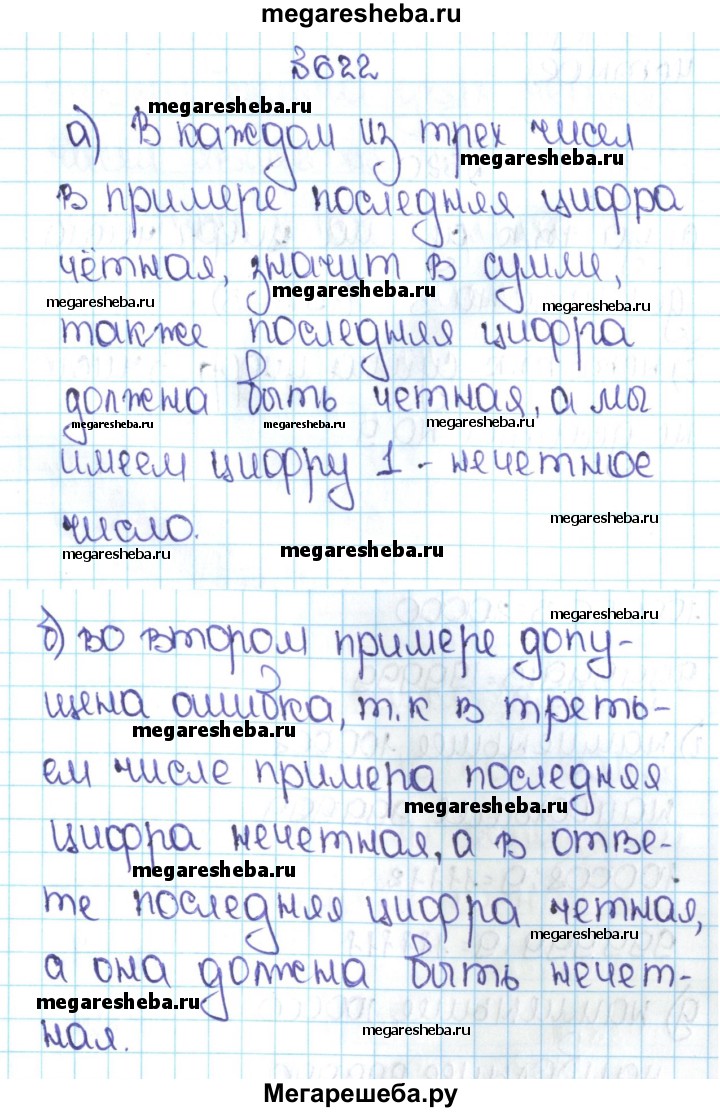 megaresheba.ru
№622
megaresheba.ru
а) В каждом из трех чисел
megaresheba.ru
в примере последняя цифра
чётная, значит в сумми,
megaresheba.ru
megaresheba.ru
megaresheba.ru
также последняя цифра
должена быть четная, а мы
megaresheba.ru
megaresheba.ru
megaresheba.ru
имеем цифру 1 - нечетное
число.
megaresheba.ru
megaresheba.ru
megaresheba.ru
megaresheba.ru
б) во втором примере допу-
щена ошибка, т.к в треть-
megaresheba.ru
ем числе примера последняя
megaresheba.ru
цифра нечетная, а в отве-
megaresheba.ru
те последняя цифра четная,
megaresheba.ru
а она должена быть нечет-
megaresheba.ru
ная.
megaresheba.ru
Мегарешеба.ру